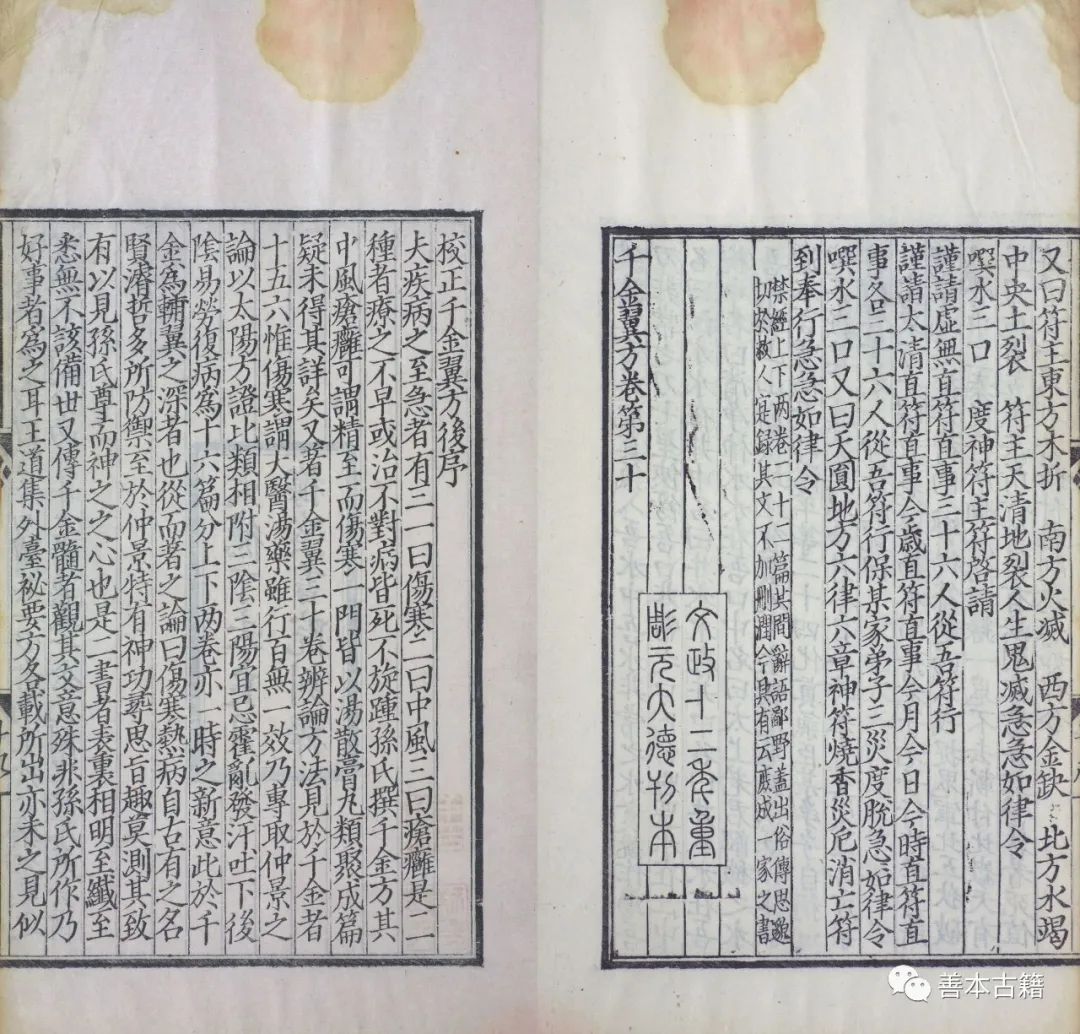 又曰符主東方木折　南方火滅　西方金缺　北方水竭
中央土裂　符主天清地裂人生鬼滅急急如律令
噀水三口　度神符主符啓請
謹請虛無直符直事三十六人從吾符行
謹請太清直符直事今歲直符直事今月今日今時直符直
事各三十六人從吾符行保某家弟子三災度脫急急如律令
噀水三口又曰天圎地方六律六章神符燒香災厄消亡符
到奉行急急如律令
禁經上下两卷二十二篇其間辭語鄙野蓋出俗傳思邈
切於救人寔録其文不加刪潤今具有云庶成一家之書
千金翼方卷第三十
文政十二年重
彫元大德刊本
校正千金翼方後序
夫疾病之至急者有三一曰傷寒二曰中風三曰瘡癰是二
種者療之不早或治不對病皆死不旋踵孫氏撰千金方其
中風瘡癰可謂精至而傷寒一門皆以湯散膏丸類聚成篇
疑未得其詳矣又著千金翼三十卷辨論方法見於千金者
十五六惟傷寒謂大醫湯藥雖行百無一效乃專取仲景之
論以太陽方證比類相附三陰三陽宜忌霍亂發汗吐下後
陰易勞復病爲十六篇分上下两卷亦一時之新意此於千
金爲輔翼之深者也從而著之論曰傷寒熱病自古有之名
賢濬哲多所防禦至於仲景特有神功尋思旨趣莫測其致
有以見孫氏尊而神之之心也是二書者表裏相明至纖至
悉無不該備世又傳千金髓者觀其文意殊非孫氏所作乃
好事者爲之耳王道集外臺祕要方各載所出亦未之見似
善本古籍